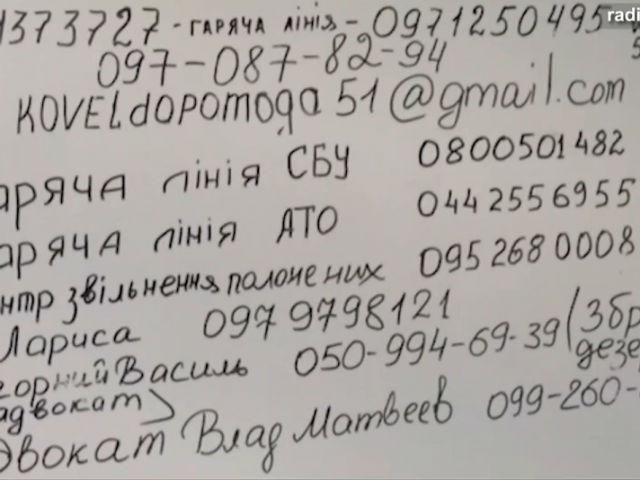 radi
1373727 - ГАРЯЧА лінія - 0971250495
097-087-82-94
KOVELdOPOMOДa51@gmail.com
аРЯЧА лінія СБУ 0800501482
аРЯЧА лінія АТО 0442556955
нтр звільнення полонених 0952680008
Лариса 0979798121
горний Василь 050-994-69-39 (Збр
адвокат) дезе
двокат Влад Матвеев 099-260-